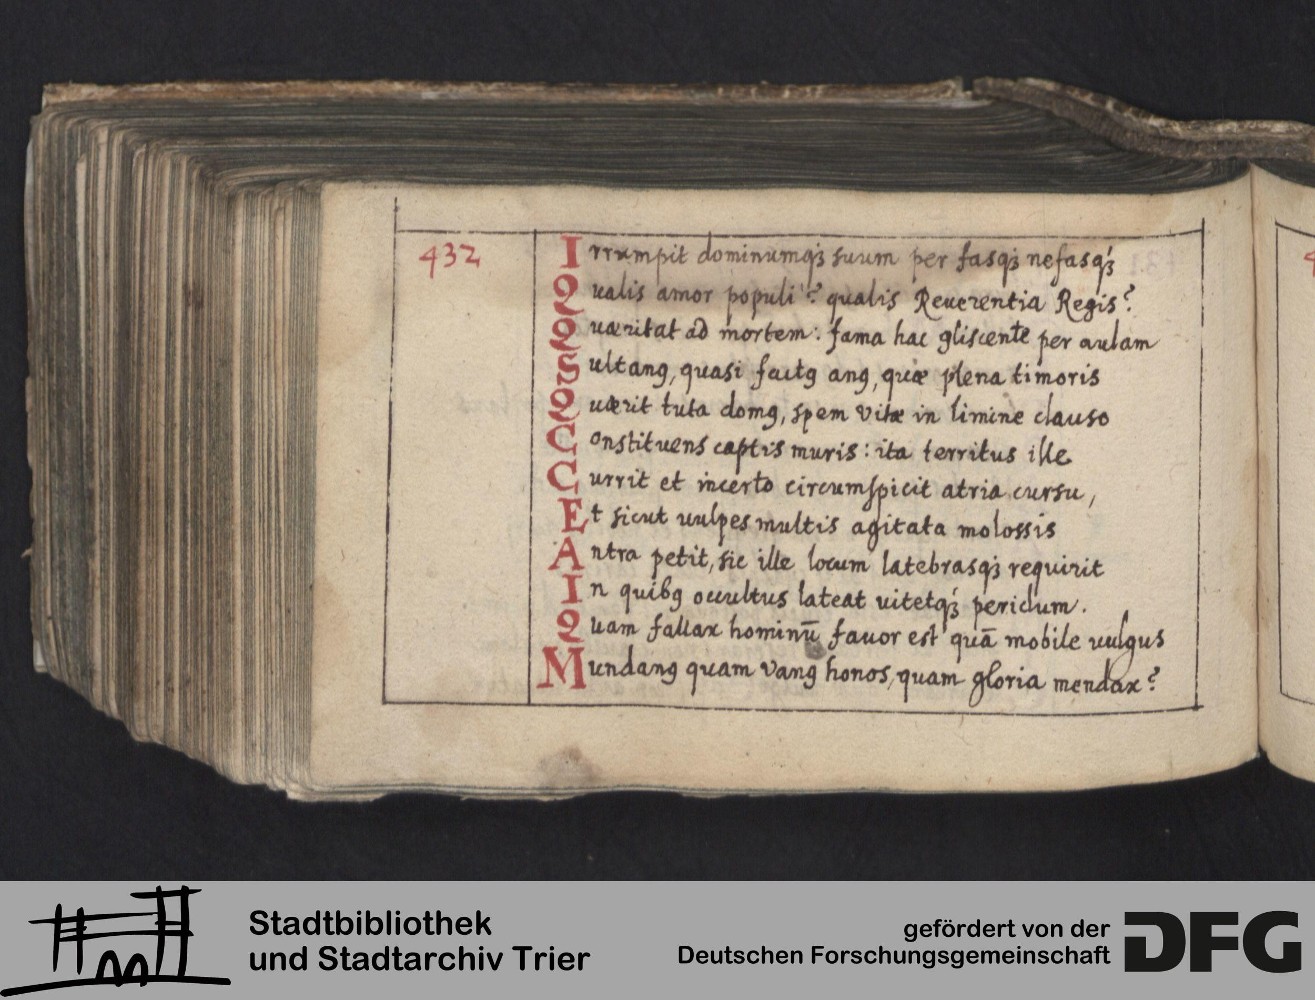 432
Irrumpit dominumqꝫ suum per fasqꝫ nefasqꝫ
Qualis amor populi? qualis Reuerentia Regis?
Quæritat ad mortem: fama hac gliscente per aulam
Sultanꝯ, quasi factꝯ anꝯ, quæ plena timoris
Quærit tuta domꝯ, spem vitæ in limine clauso
Constituens captis muris: ita territus ille
Currit et incerto circumspicit atria cursu,
Et sicut uulpes multis agitata molossis
Antra petit, sic ille locum latebrasqꝫ requirit
In quibꝯ occultus lateat uitetqꝫ periclum.
Quam fallax hominū fauor est quā mobile uulgus
Mundanꝯ quam vanꝯ honos, quam gloria mendax?
4
Stadtbibliothek
und Stadtarchiv Trier
gefördert von der
Deutschen Forschungsgemeinschaft
DFG